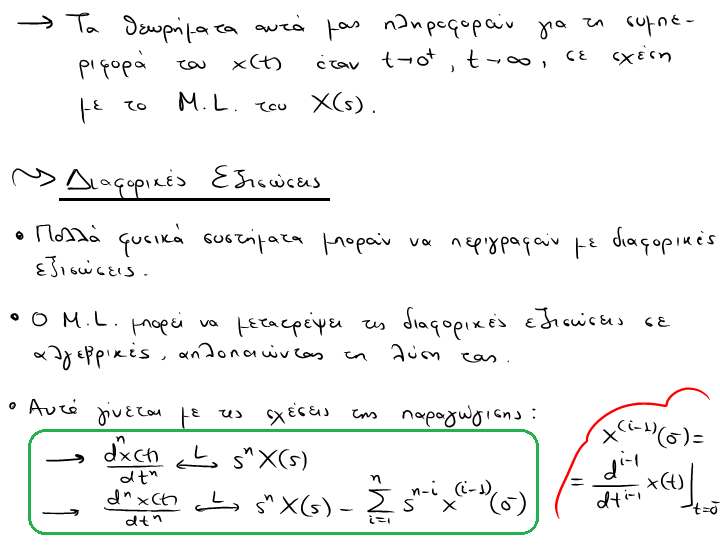 → Τα θεωρήματα αυτά μας πληροφορούν για τη συμπε-
ριφορά του x(t) όταν t→0⁺, t→∞, σε σχέση
με το M.L. του X(s).
Διαφορικές Εξισώσεις
• Πολλά φυσικά συστήματα μπορούν να περιγραφούν με διαφορικές
εξισώσεις.
• Ο M.L. μπορεί να μετατρέψει τις διαφορικές εξισώσεις σε
αλγεβρικές, απλοποιώντας τη λύση τους.
• Αυτό γίνεται με τις σχέσεις της παραγώγισης:
→ dⁿx(t)/dtⁿ ⟷ᴸ sⁿX(s)
→ dⁿx(t)/dtⁿ ⟷ᴸ sⁿX(s) − ∑_{i=1}^{n} s^{n-i} x^{(i-1)}(0⁻)
x^{(i-1)}(0⁻) =
= d^{i-1}/dt^{i-1} x(t)]_{t=0⁻}